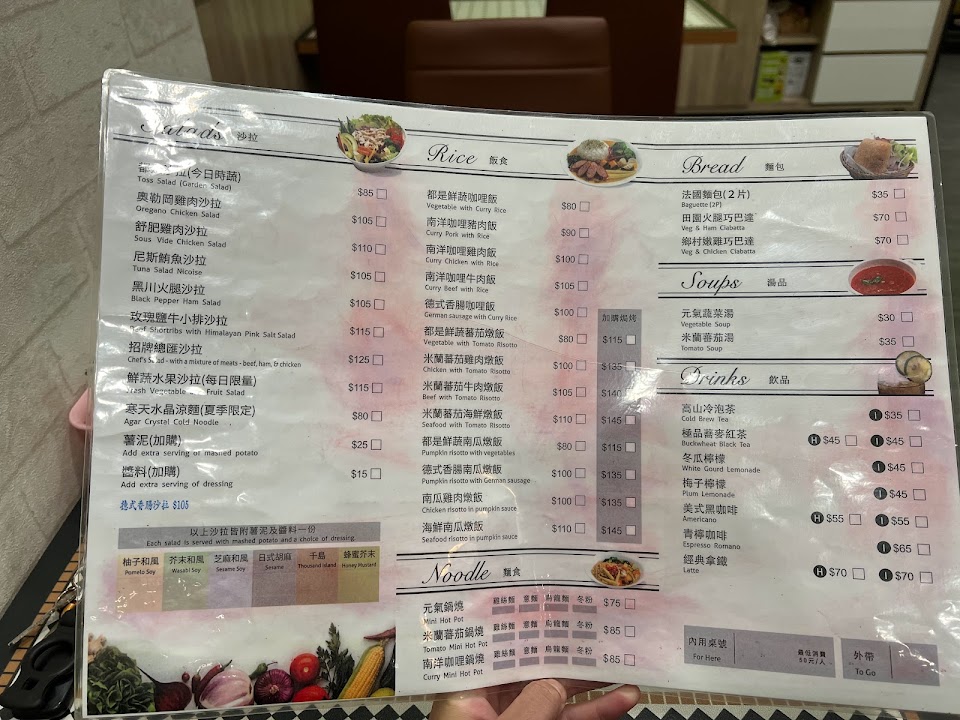 Salads 沙拉
沙拉(今日時蔬)
Toss Salad (Garden Salad)
$85
奧勒岡雞肉沙拉
Oregano Chicken Salad
$105
舒肥雞肉沙拉
Sous Vide Chicken Salad
$110
尼斯鮪魚沙拉
Tuna Salad Nicoise
$105
黑川火腿沙拉
Black Pepper Ham Salad
$105
玫瑰鹽牛小排沙拉
Beef Shortribs with Himalayan Pink Salt Salad
$115
招牌總匯沙拉
Chef's Salad - with a mixture of meats - beef, ham, & chicken
$125
鮮蔬水果沙拉(每日限量)
Fresh Vegetable and Fruit Salad
$115
寒天水晶涼麵(夏季限定)
Agar Crystal Cold Noodle
$80
薯泥(加購)
Add extra serving of mashed potato
$25
醬料(加購)
Add extra serving of dressing
$15
德式香腸沙拉 $105
以上沙拉皆附薯泥及醬料一份
Each salad is served with mashed potato and a choice of dressing.
柚子和風 芥末和風 芝麻和風 日式胡麻 千島 蜂蜜芥末
Pomelo Soy Wasabi Soy Sesame Soy Sesame Thousand Island Honey Mustard
Rice 飯食
都是鮮蔬咖哩飯
Vegetable with Curry Rice
$80
南洋咖哩豬肉飯
Curry Pork with Rice
$90
南洋咖哩雞肉飯
Curry Chicken with Rice
$100
南洋咖哩牛肉飯
Curry Beef with Rice
$105
德式香腸咖哩飯
German sausage with Curry Rice
$100
加購焗烤
都是鮮蔬蕃茄燉飯
Vegetable with Tomato Risotto
$80 $115
米蘭蕃茄雞肉燉飯
Chicken with Tomato Risotto
$100 $135
米蘭蕃茄牛肉燉飯
Beef with Tomato Risotto
$105 $140
米蘭蕃茄海鮮燉飯
Seafood with Tomato Risotto
$110 $145
都是鮮蔬南瓜燉飯
Pumpkin risotto with vegetables
$80 $115
德式香腸南瓜燉飯
Pumpkin risotto with German sausage
$100 $135
南瓜雞肉燉飯
Chicken risotto in pumpkin sauce
$100 $135
海鮮南瓜燉飯
Seafood risotto in pumpkin sauce
$110 $145
Noodle 麵食
元氣鍋燒 雞絲麵 意麵 烏龍麵 冬粉 $75
Mini Hot Pot
米蘭蕃茄鍋燒 雞絲麵 意麵 烏龍麵 冬粉 $85
Tomato Mini Hot Pot
南洋咖哩鍋燒 雞絲麵 意麵 烏龍麵 冬粉 $85
Curry Mini Hot Pot
Bread 麵包
法國麵包(2片) $35
Baguette(2P)
田園火腿巧巴達 $70
Veg & Ham Ciabatta
鄉村嫩雞巧巴達 $70
Veg & Chicken Ciabatta
Soups 湯品
元氣蔬菜湯 $30
Vegetable Soup
米蘭蕃茄湯 $35
Tomato Soup
Drinks 飲品
高山冷泡茶 I $35
Cold Brew Tea
極品蕎麥紅茶 H $45 I $45
Buckwheat Black Tea
冬瓜檸檬 I $45
White Gourd Lemonade
梅子檸檬 I $45
Plum Lemonade
美式黑咖啡 H $55 I $55
Americano
青檸咖啡 I $65
Espresso Romano
經典拿鐵 H $70 I $70
Latte
內用桌號
For Here
最低消費
50元/人
外帶
To Go